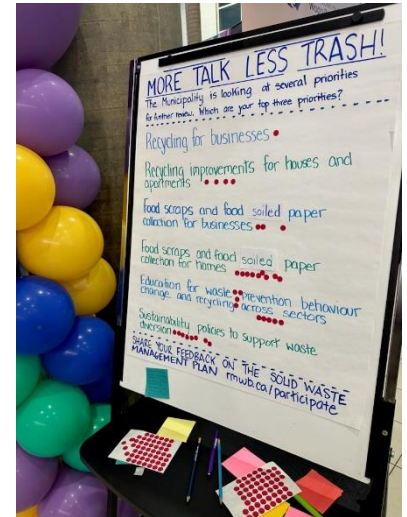 MORE TALK LESS TRASH!
The Municipality is looking at several priorities
for further review. Which are your top three priorities?
Recycling for businesses
Recycling improvements for houses and
apartments
Food scraps and food soiled paper
collection for businesses
Food scraps and food soiled paper
collection for homes
Education for waste prevention behaviour
change and recycling across sectors
Sustainability policies to support waste
diversion
SHARE YOUR FEEDBACK ON THE SOLID WASTE
MANAGEMENT PLAN rmwb.ca/participate